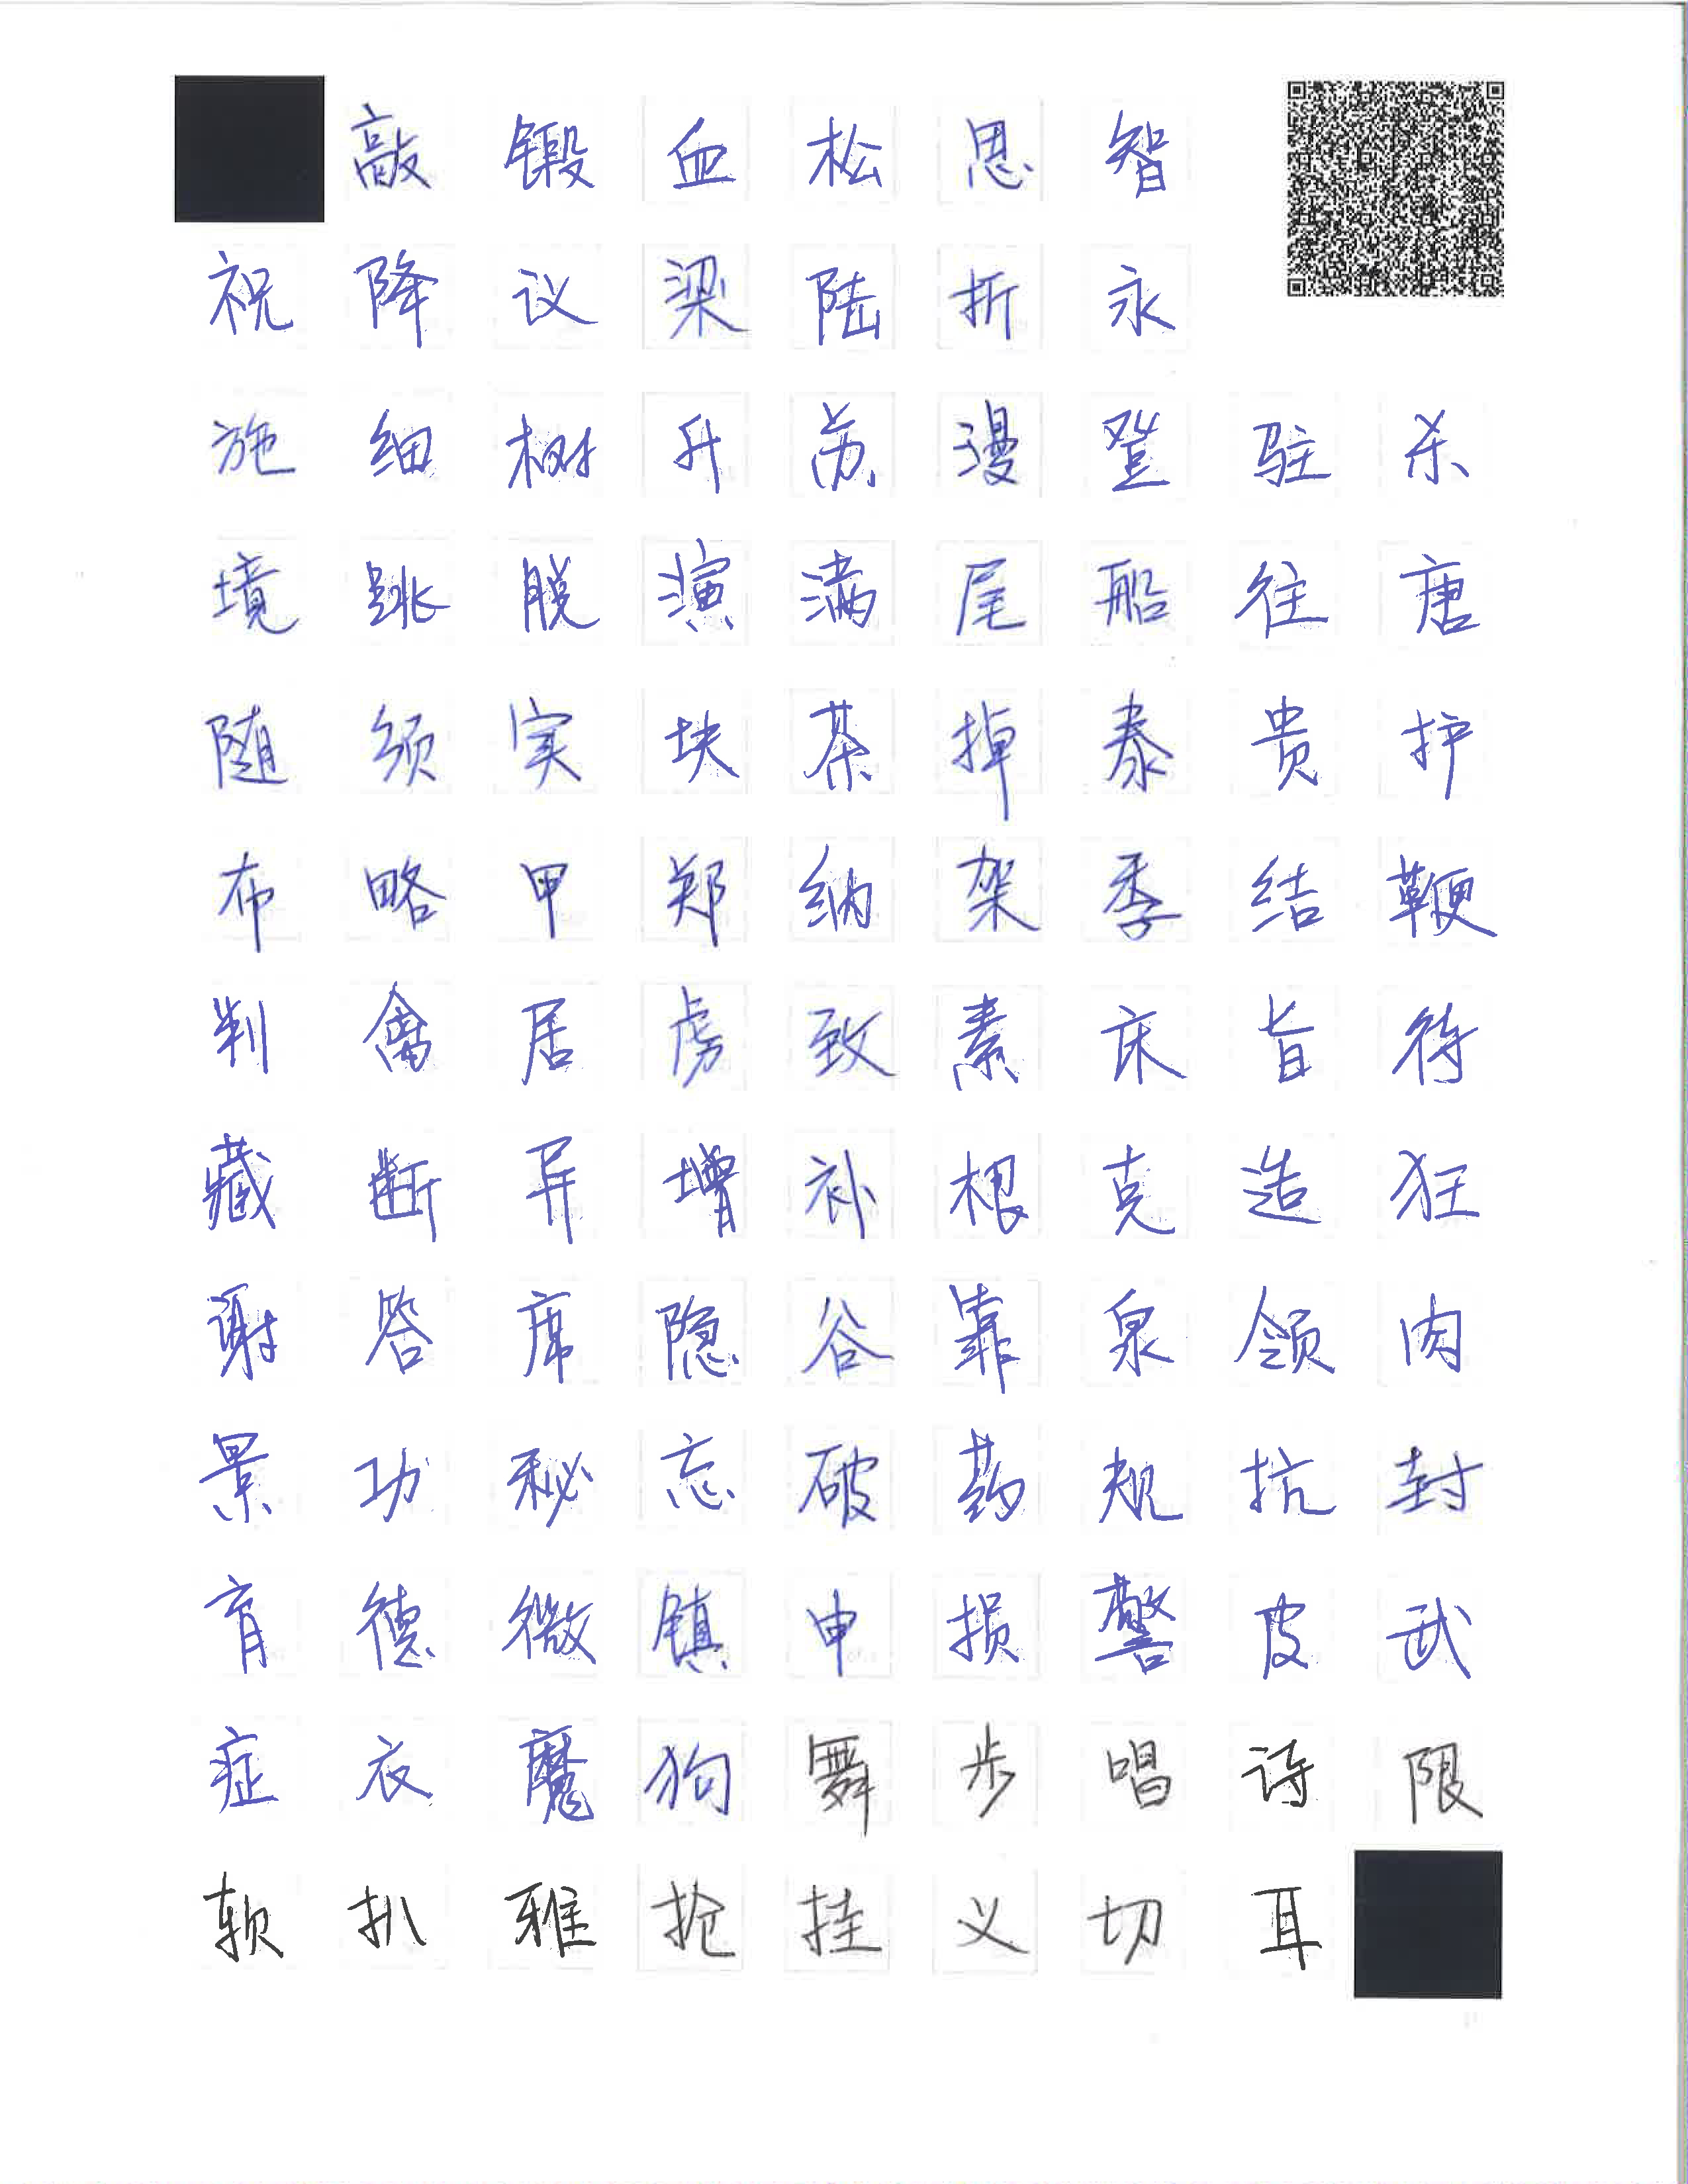 敲 锻 血 松 恩 智
祝 降 议 梁 陆 折 永
施 细 树 升 苏 漫 登 驻 杀
境 跳 脱 演 满 尾 船 往 唐
随 须 实 块 茶 掉 泰 贵 护
布 略 甲 郑 纳 架 季 结 鞭
判 禽 居 虏 致 素 床 旨 待
藏 断 异 增 补 根 克 造 狂
谢 答 席 隐 谷 靠 泉 领 肉
景 功 秘 忘 破 药 规 抗 封
育 德 微 镇 申 损 警 皮 武
症 衣 魔 狗 舞 步 唱 诗 限
软 扒 雅 抢 挂 义 切 耳